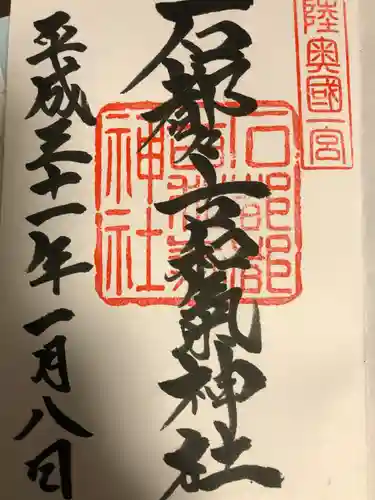 陸奥國一宮
石都々古和氣神社
石都都
古和氣
神社
平成三十一年一月八日